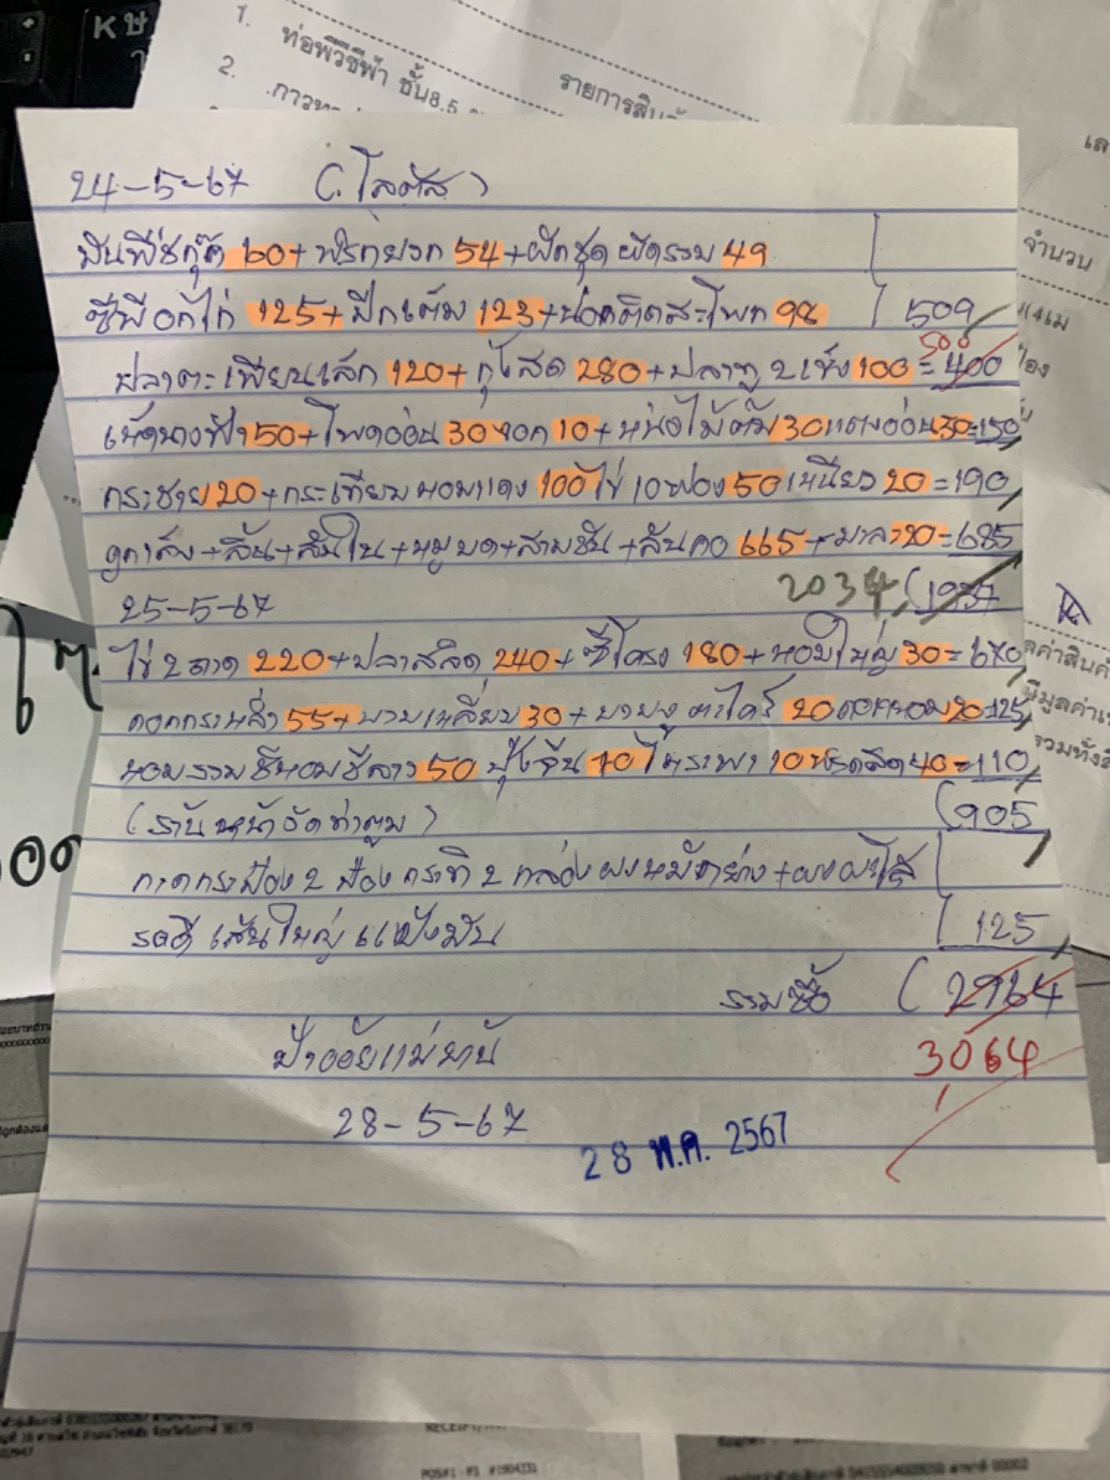 K ษ
1. ท่อพีวีซีฟ้า ชั้น8.5
รายการสิน
2. กาวทา
เล
จำนวน
24-5-67 (โลตัส)
มันฝีชกุ๊ก 60+ พริกยวก 54 + ผักชุด ผัดรวม 49
ซีพีอกไก่ 125+ ปีกเต็ม 123+ น่องติดสะโพก 98 509
500
ปลาตะเพียนเล็ก 120+ กุ้งสด 280+ ปลาทู 2 เข่ง 100 = 400
เห็ดนางฟ้า 50+ โพดอ่อน 30 งอก 10+ หน่อไม้ต้ม 30 แตงอ่อน 30=150
กระชาย 20+ กระเทียมหอมแดง 100 ไข่ 10 ฟอง 50 เหนียว 20 = 190
+ลิ้น+สันใน+หมูบด+สามชั้น+สันคอ 665+ 20=685
25-5-67 2034 (1937
ไข่ 2 ถาด 220+ ปลาสลิด 240+ ซี่โครง 180+ หอมใหญ่ 30=670
ดอกกระหล่ำ 55+ บวบเหลี่ยม 30+ บวบงู ตะไคร้ 20 ดอกหอม 20=125
หอมรวมชีหอมชีลาว 50 บุ้งจีน 10 โหระพา 10 พริกสด 40=110
(ร้านหน้าวัดท่าตูม) (905
กาดกระป๋อง 2 ป๋อง กะทิ 2 กล่อง ผงหมัก ย่าง +ผงผะโล้
รสดี เส้นใหญ่ แป้งมัน 125
รวมซื้อ (2964
3064
ป้าอ้อยแม่บ้าน
28-5-67
28 พ.ค. 2567
00
ลค่าสินค้
รวมทั้งสิ
POS#1-#3 #1904331